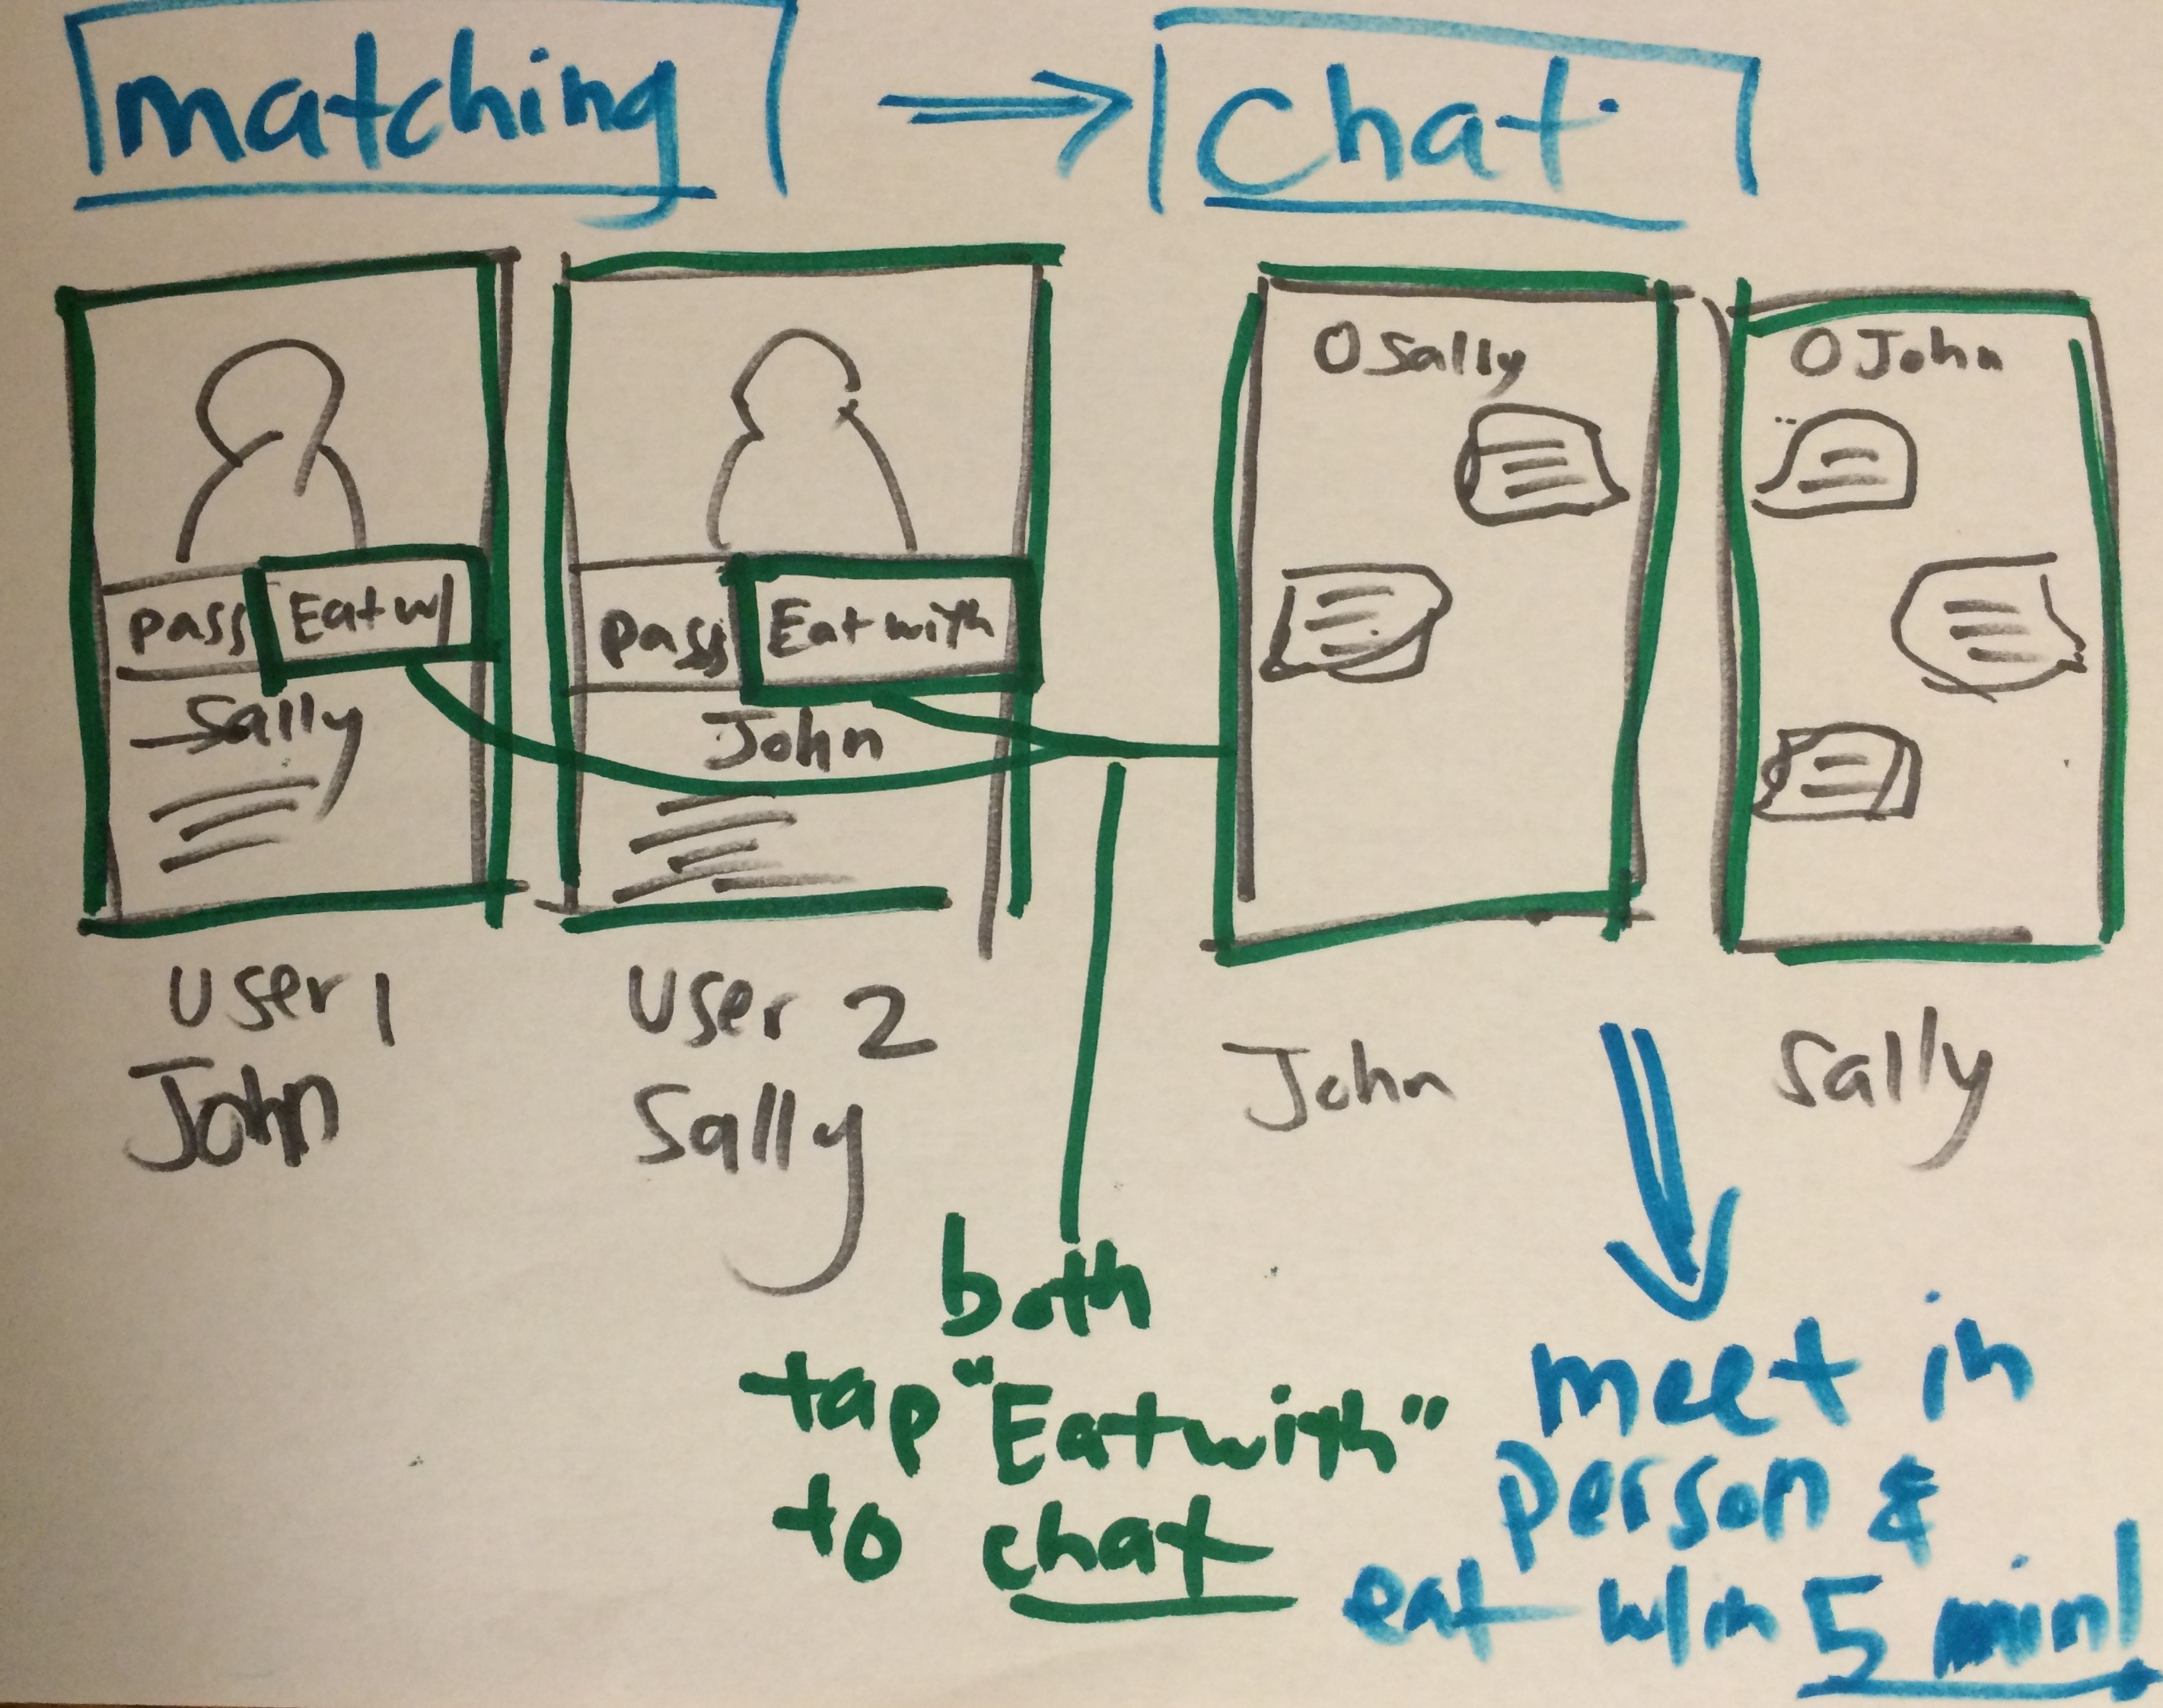 matching
chat
pass Eat w/
Sally
User 1
John
pass Eat with
John
User 2
Sally
O Sally
John
O John
Sally
both
tap "Eat with"
to chat
meet in
person &
eat w/in 5 min!